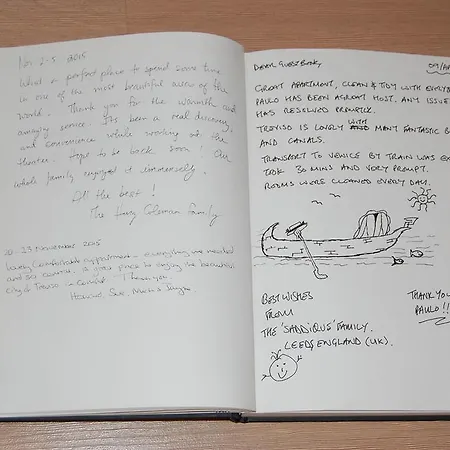 Nov 2-5 2015
What a perfect place to spend some time
in one of the most beautiful areas of the
world. Thank you for the warmth and
amazing service. It's been a real discovery,
and convenience while working at the
theater. Hope to be back soon! Our
whole family enjoyed it immensely.
All the best!
The Coleman Family
20-23 November 2015
Lovely, comfortable appartment - everything we needed
and so central. A great place to enjoy the beautiful
city of Treviso - Thank you.
Howard, Sue,
Dear Guest Book,
09/
GREAT APARTMENT, CLEAN & TIDY WITH
PAULO HAS BEEN A GREAT HOST. ANY ISSUE
HAS RESOLVED PROMPTLY.
TREVISO IS LOVELY WITH MANY FANTASTIC
AND CANALS.
TRANSPORT TO VENICE BY TRAIN WAS
TOOK 30 MINS AND VERY PROMPT.
ROOMS WERE CLEANED EVERY DAY.
BEST WISHES
FROM
THE 'SADDIQUE' FAMILY.
LEEDS ENGLAND (UK).
THANK YOU
PAULO!!